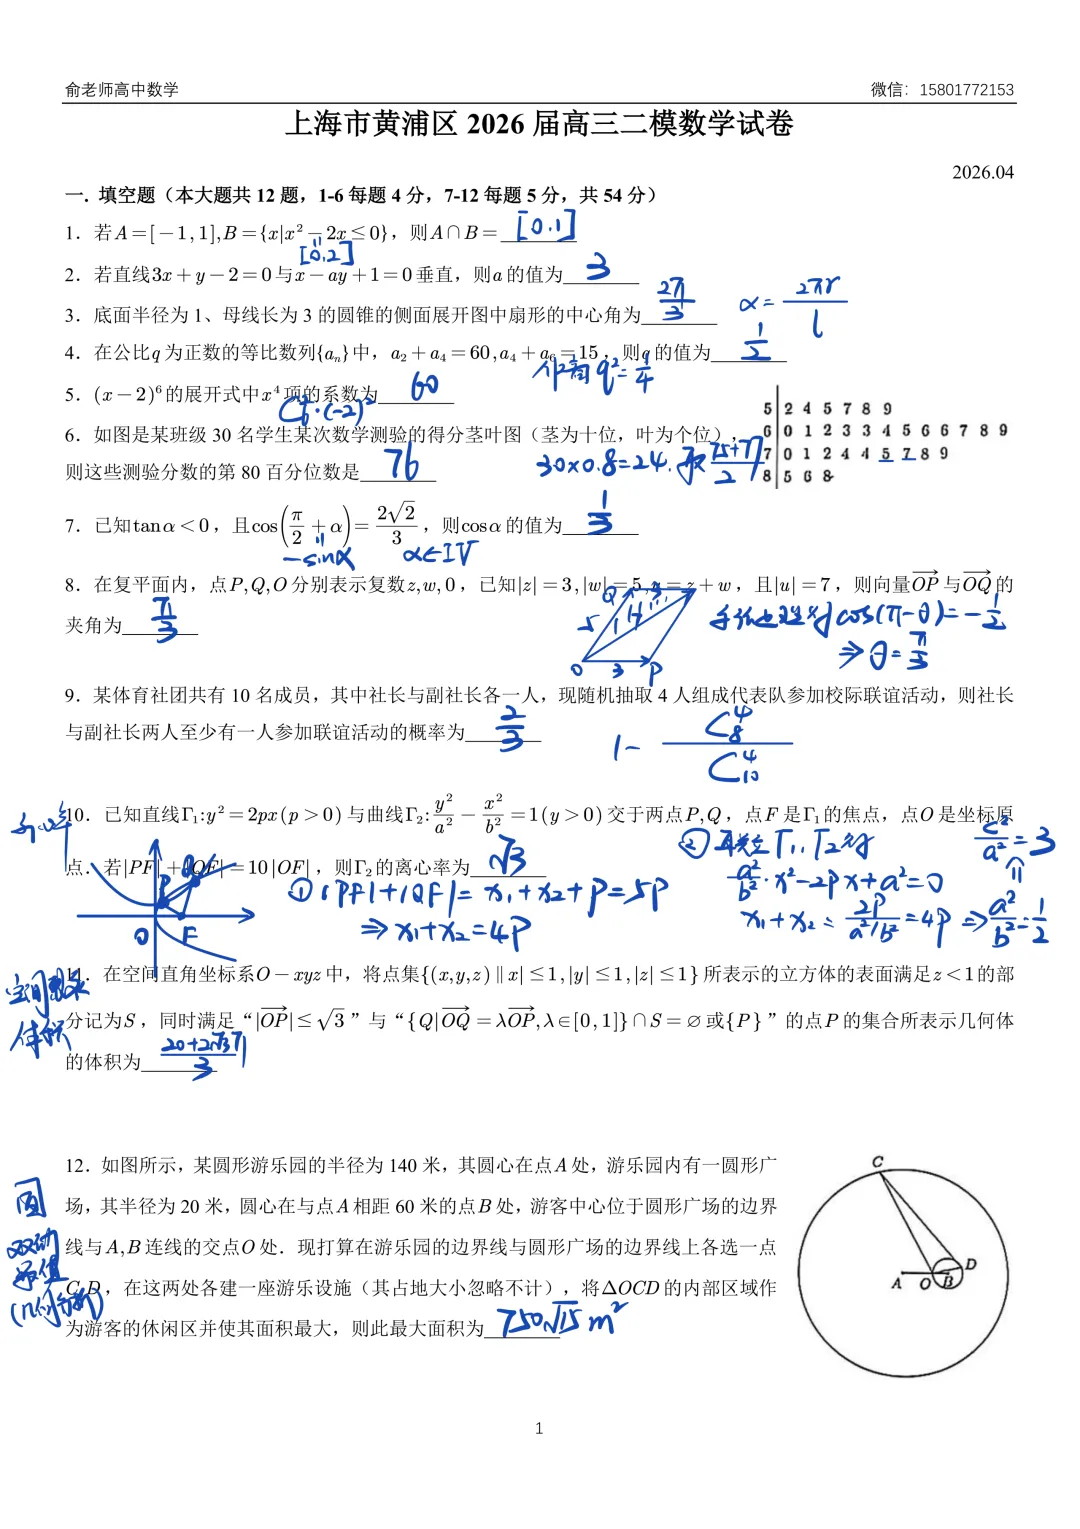 俞老师高中数学 微信：15801772153
上海市黄浦区 2026 届高三二模数学试卷
2026.04
一．填空题（本大题共 12 题，1-6 每题 4 分，7-12 每题 5 分，共 54 分）
1．若A=[-1,1],B={x|x²-2x≤0}，则A∩B=[0,1]
[0,2]
2．若直线3x+y-2=0与x-ay+1=0垂直，则a的值为 3
3．底面半径为 1、母线长为 3 的圆锥的侧面展开图中扇形的中心角为 2π/3 α=2πr/l
4．在公比q为正数的等比数列{aₙ}中，a₂+a₄=60,a₄+a₆=15，则q的值为 1/2
作商 q²=1/4
5．(x-2)⁶的展开式中x⁴项的系数为 60
C₆⁴·(-2)²
6．如图是某班级 30 名学生某次数学测验的得分茎叶图（茎为十位，叶为个位），
则这些测验分数的第 80 百分位数是 76 30×0.8=24. 取 (75+77)/2
5 | 2 4 5 7 8 9
6 | 0 1 2 3 3 4 5 6 6 7 8 9
7 | 0 1 2 4 4 5 7 8 9
8 | 5 6 8
7．已知tanα<0，且cos(π/2+α)=2√2/3，则cosα的值为 1/3
-sinα α∈IV
8．在复平面内，点P,Q,O分别表示复数z,w,0，已知|z|=3,|w|=5,u=z+w，且|u|=7，则向量OP→与OQ→的
夹角为 π/3
Q 3
5
O 3 P
cos(π-θ)=-1/2
⇒θ=π/3
9．某体育社团共有 10 名成员，其中社长与副社长各一人，现随机抽取 4 人组成代表队参加校际联谊活动，则社长
与副社长两人至少有一人参加联谊活动的概率为 2/3 1-C₈⁴/C₁₀⁴
10．已知直线Γ₁:y²=2px(p>0)与曲线Γ₂:y²/a²-x²/b²=1(y>0)交于两点P,Q，点F是Γ₁的焦点，点O是坐标原
离心率
点．若|PF|+|QF|=10|OF|，则Γ₂的离心率为 √3
O F
① |PF|+|QF|=x₁+x₂+p=5p
⇒x₁+x₂=4p
② 再联立Γ₁,Γ₂得
a²/b²·x²-2px+a²=0
x₁+x₂=2p/(a²/b²)=4p ⇒a²/b²=1/2
c²/a²=3
11．在空间直角坐标系O-xyz中，将点集{(x,y,z)‖x|≤1,|y|≤1,|z|≤1}所表示的立方体的表面满足z<1的部
分记为S，同时满足“|OP→|≤√3”与“{Q|OQ→=λOP→,λ∈[0,1]}∩S=∅或{P}”的点P的集合所表示几何体
体积
的体积为 (20+2√3π)/3
12．如图所示，某圆形游乐园的半径为 140 米，其圆心在点A处，游乐园内有一圆形广
场，其半径为 20 米，圆心在与点A相距 60 米的点B处，游客中心位于圆形广场的边界
线与A,B连线的交点O处．现打算在游乐园的边界线与圆形广场的边界线上各选一点
C,D，在这两处各建一座游乐设施（其占地大小忽略不计），将ΔOCD的内部区域作
为游客的休闲区并使其面积最大，则此最大面积为 750√15 m²
圆
双动
最值
C
D
A O B
1